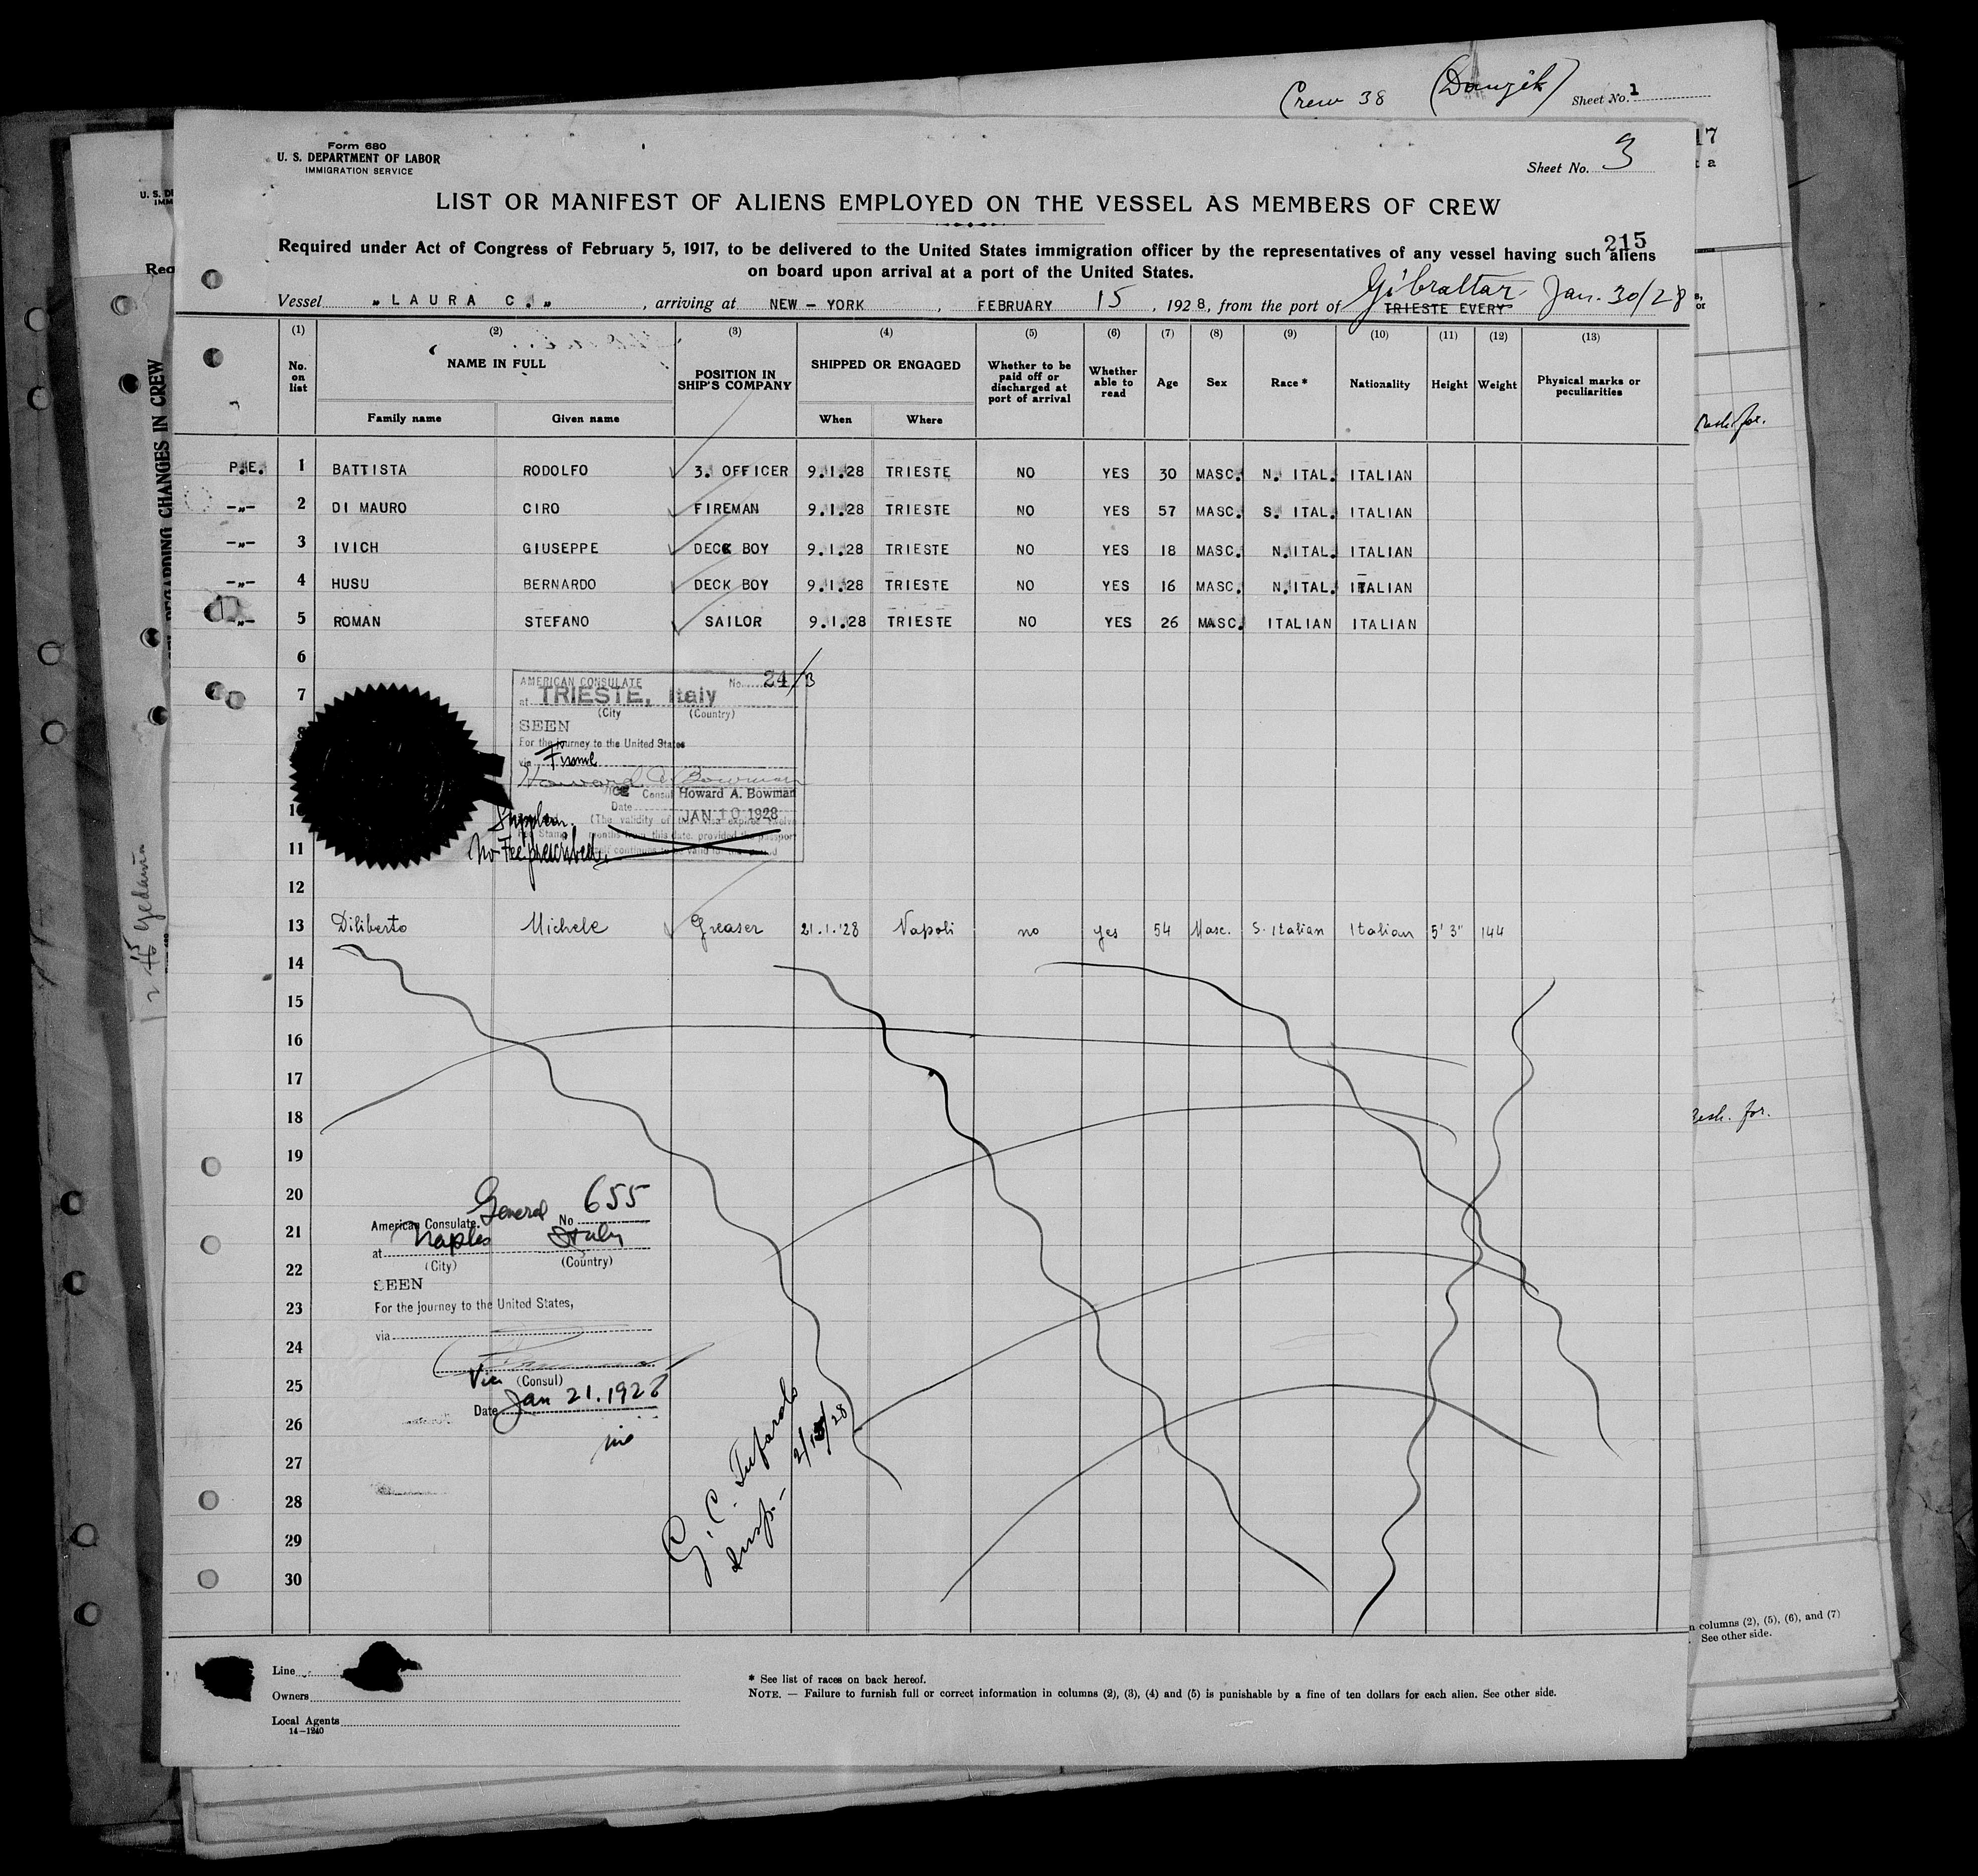 Crew 38 (Danzik) Sheet No. 1
17
Form 680
U. S. DEPARTMENT OF LABOR
IMMIGRATION SERVICE
Sheet No. 3
LIST OR MANIFEST OF ALIENS EMPLOYED ON THE VESSEL AS MEMBERS OF CREW
215
Required under Act of Congress of February 5, 1917, to be delivered to the United States immigration officer by the representatives of any vessel having such aliens
on board upon arrival at a port of the United States.
Vessel „ LAURA C. „ , arriving at NEW - YORK , FEBRUARY 15 , 1928, from the port of Gibraltar Jan. 30/28
TRIESTE EVERY
(1) (2) (3) (4) (5) (6) (7) (8) (9) (10) (11) (12) (13)
No. on list NAME IN FULL POSITION IN SHIP'S COMPANY SHIPPED OR ENGAGED Whether to be paid off or discharged at port of arrival Whether able to read Age Sex Race * Nationality Height Weight Physical marks or peculiarities
Family name Given name When Where
P.E. 1 BATTISTA RODOLFO 3. OFFICER 9.1.28 TRIESTE NO YES 30 MASC. N. ITAL. ITALIAN
-„- 2 DI MAURO CIRO FIREMAN 9.1.28 TRIESTE NO YES 57 MASC. S. ITAL. ITALIAN
-„- 3 IVICH GIUSEPPE DECK BOY 9.1.28 TRIESTE NO YES 18 MASC. N.ITAL. ITALIAN
-„- 4 HUSU BERNARDO DECK BOY 9.1.28 TRIESTE NO YES 16 MASC. N.ITAL. ITALIAN
-„- 5 ROMAN STEFANO SAILOR 9.1.28 TRIESTE NO YES 26 MASC. ITALIAN ITALIAN
6
AMERICAN CONSULATE No. 24/3
7
at TRIESTE, Italy
(City (Country)
SEEN
For the journey to the United States
via Fiume
Howard A. Bowman
Consul Howard A. Bowman
Date JAN 10 1928
No Fee prescribed.
11
12
13 Diliberto Michele Greaser 21.1.'28 Napoli no yes 54 Masc. S. Italian Italian 5' 3" 144
14
15
16
17
18
19
20
American Consulate General No 655
21
at Naples Italy
(City) (Country)
22
SEEN
23
For the journey to the United States,
via
24
Vice (Consul)
25
Date Jan 21. 1928
26
27
28
29
30
G. C. Tufarolo
Insp. - 2/15/28
Line
Owners
Local Agents
14-1240
* See list of races on back hereof.
NOTE. — Failure to furnish full or correct information in columns (2), (3), (4) and (5) is punishable by a fine of ten dollars for each alien. See other side.
REGARDING CHANGES IN CREW
columns (2), (5), (6), and (7)
See other side.